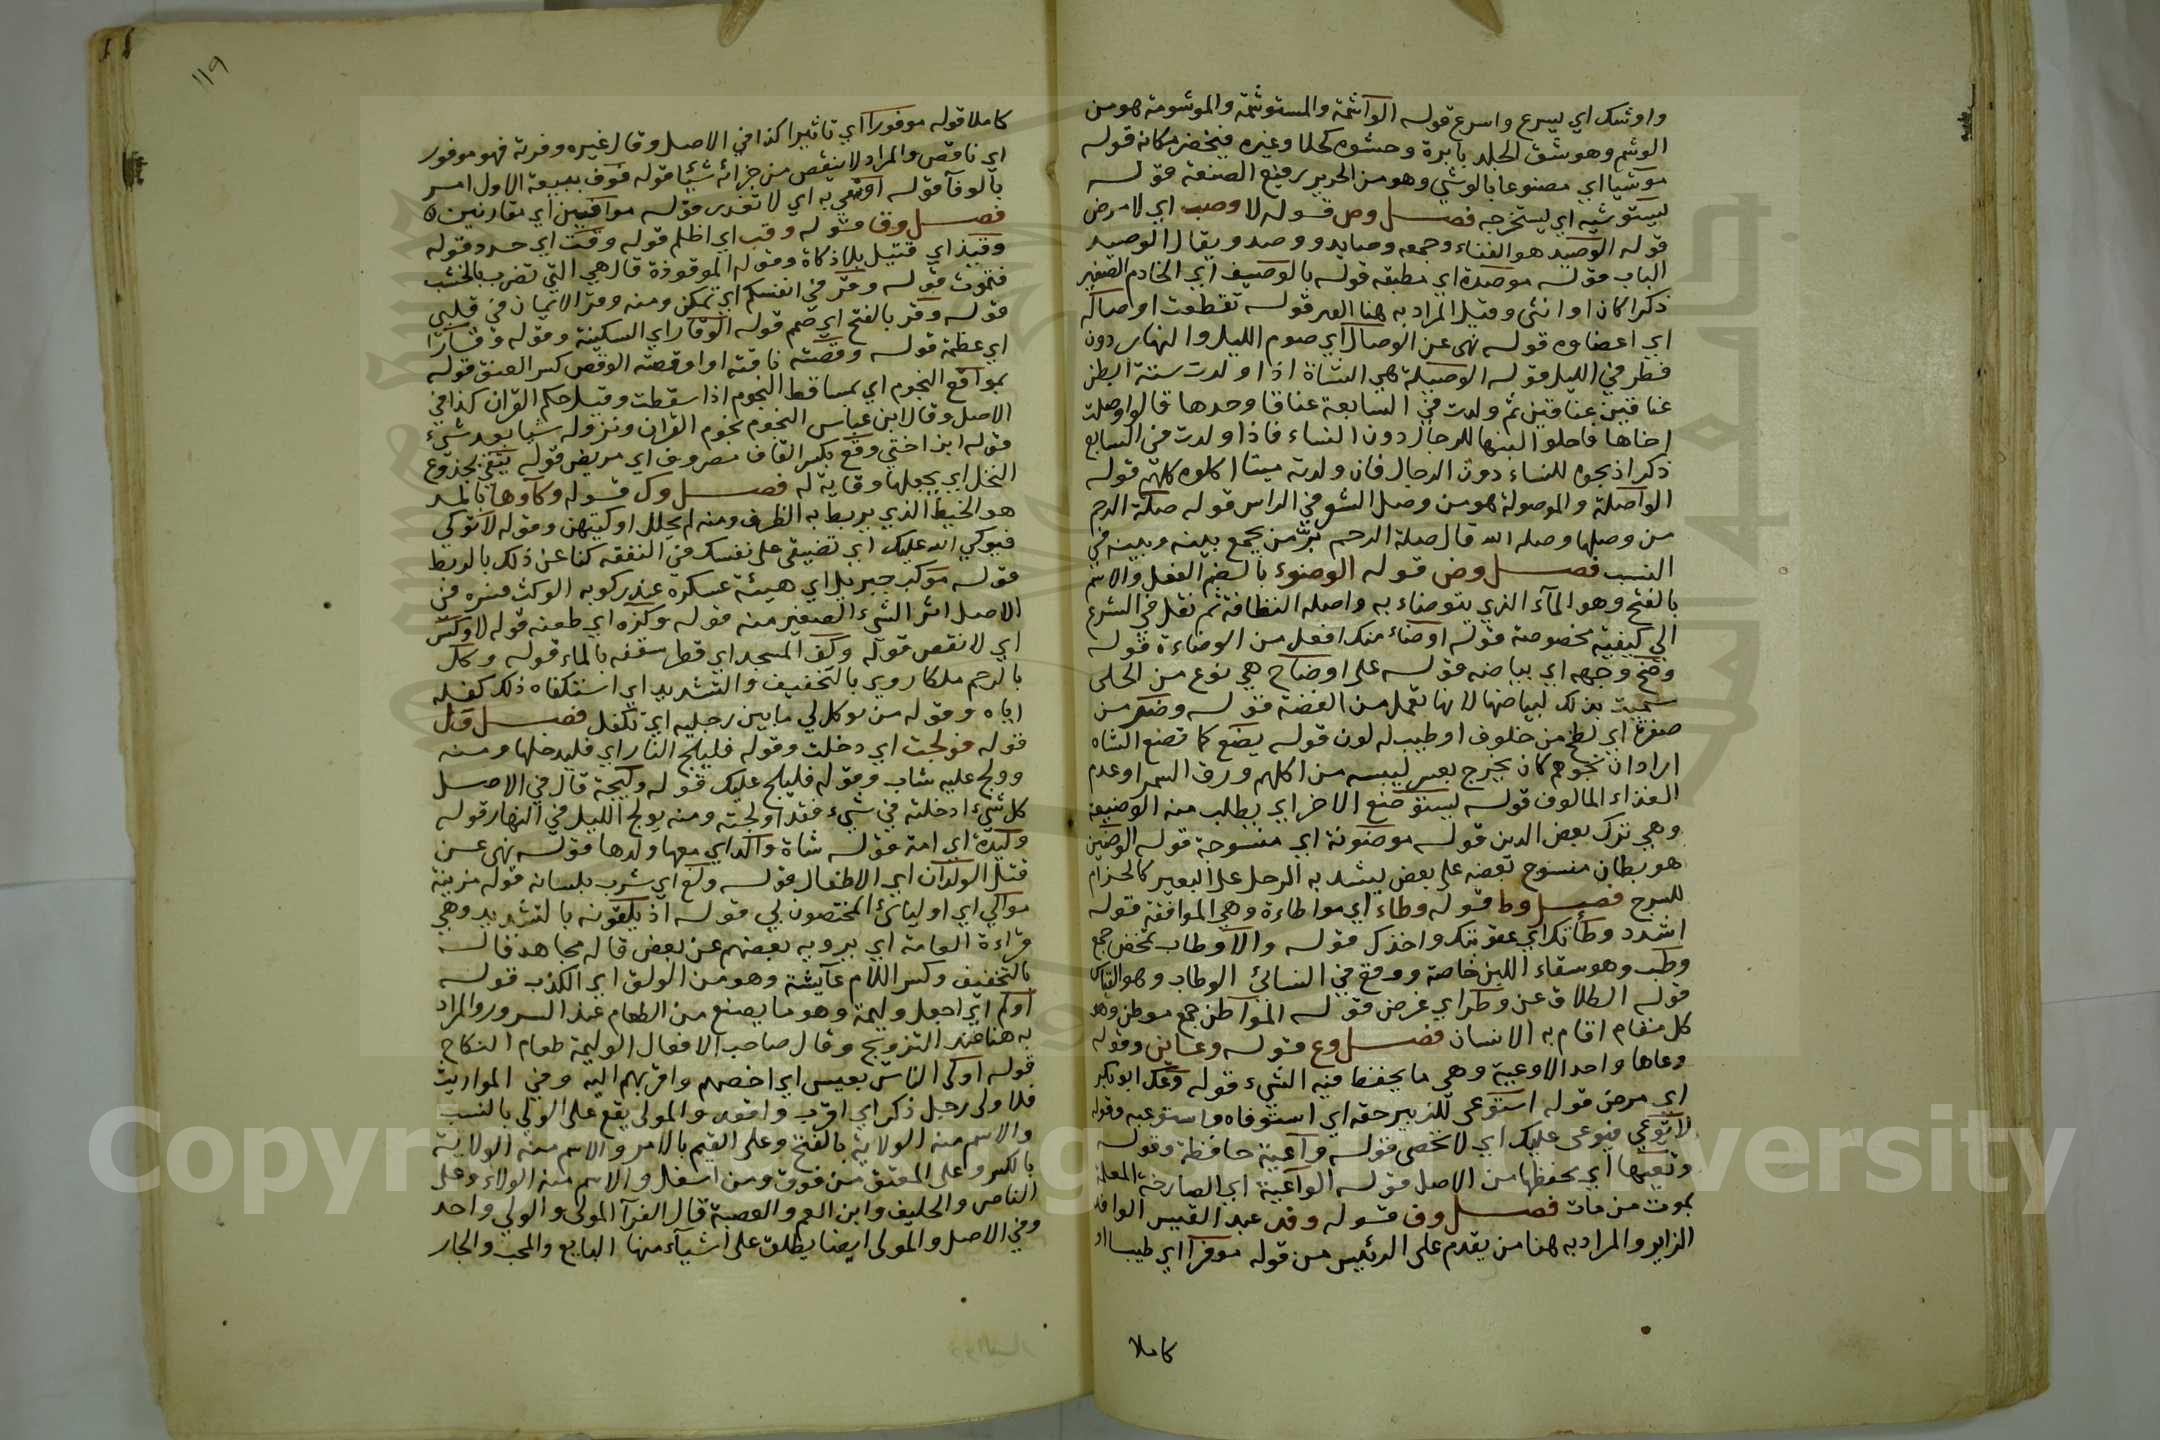 واوشك اي يسرع واسرع قوله الواشمة والمستوشمة والموشومة هو من
الوشم وهو شق الجلد بابرة وحشوه كحلا وغيره فيخضر مكانه قوله
موشيا اي مصنوعا بالوشي وهو من الحرير رفيع الصنعة قوله
يستوشيه اي يستخرجه فصل وص قوله لا وصب اي لا مرض
قوله الوصيد هو الفناء وجمعه وصايد ووصد ويقال الوصيد
الباب قوله موصدة اي مطبقه قوله بالوصيف اي الخادم الصغير
ذكرا كان او انثى وقيل المراد به هنا العبد قوله تقطعت اوصاله
اي اعضاوه قوله نهى عن الوصال اي صوم الليل والنهار دون
فطر في الليل قوله الوصيلة هي الشاة اذا ولدت ستة ابطن
عناقين عناقين ثم ولدت في السابعة عناقا وحدها قالوا وصلت
اخاها فاحلوا لبنها للرجال دون النساء فاذا ولدت في السابع
ذكرا ذبحوه للنساء دون الرجال فان ولدته ميتا اكلوه كلهم قوله
الواصلة والموصولة هو من وصل الشعر في الراس قوله صلة الرحم
من وصلها وصله الله قال صلة الرحم بر من يجمع بينه وبينه في
النسب فصل وض قوله الوضوء بالضم الفعل والاسم
بالفتح وهو الماء الذي يتوضاء به واصله النظافة ثم نقل في الشرع
الى كيفية مخصوصة قوله اوضاء منك افعل من الوضاءة قوله
وضح وجهه اي بياضه قوله على اوضاح هي نوع من الحلى
سميت بذلك لبياضها لانها تعمل من الفضة قوله وضر من
صفرة اي لطخ من خلوف او طيب له لون قوله يضع كما تضع الشاه
اراد ان نجوهم كان يخرج بعر ليبسه من اكلهم ورق السمر وعدم
الغذاء المالوف قوله يستوضع الاخر اي يطلب منه الوضيعة
وهي ترك بعض الدين قوله موضونة اي منسوجة قوله الوضين
هو بطان منسوج بعضه على بعض يشد به الرحل على البعير كالحزام
للسرج فصل وط قوله وطاء اي مواطاءة وهي الموافقة قوله
اشدد وطأتك اي عقوبتك واخذك قوله والاوطاب تمخض جمع
وطب وهو سقاء اللبن خاصة ووقع في النسائي الوطاب وهو القياس
قوله الطلاق عن وطر اي غرض قوله المواطن جمع موطن وهو
كل مقام اقام به الانسان فصل وع قوله وعاين وقوله
وعاها واحد الاوعية وهي ما يحفظ فيه الشيء قوله وعك ابو بكر
اي مرض قوله استوعى للزبير حقه اي استوفاه واستوعبه وقوله
لا توعي فيوعى عليك اي لا تحصى قوله واعية حافظة وقوله
وتعيها اي يحفظها من الاصل قوله الواعية اي الصارخة المعلنة
بموت من مات فصل وف قوله وفد عبد القيس الوافد
الزاير والمراد به هنا من يقدم على الرئيس من قوله موفرا اي طيبا او
كاملا
١١٩
كاملا قوله موفورا اي تاثيرا كذا في الاصل وقال غيره وفرته فهو موفور
اي ناقص والمراد لا ينقص من جزائه شيئا قوله فوف ببيعة الاول امر
بالوفآ قوله اوفى به اي لا تغدر قوله موافيين اي مقارنين ه
فصل وق قوله وقب اي اظلم قوله وقت اي حدد قوله
وقيذ اي قتيل بلا ذكاة وقوله الموقوذة قال هي التي تضرب بالخشب
فتموت قوله وقر في انفسكم اي تمكن ومنه وقر الايمان في قلبي
قوله وقر بالفتح اي صمم قوله الوقار اي السكينة وقوله وقارا
اي عظمة قوله وقصته ناقته او اوقصته الوقص كسر العنق قوله
بمواقع النجوم اي بمساقط النجوم اذا سقطت وقيل حكم القران كذا في
الاصل وقال ابن عباس النجوم نجوم القران ونزوله شيا بعد شيء
قوله ابن اختي وقع بكسر القاف مصروف اي مريض قوله يتقي بجذوع
النخل اي يجعلها وقاية له فصل وك قوله وكاوها بالمد
هو الخيط الذي يربط به الظرف ومنه لم يحلل اوكيتهن وقوله لا توكي
فيوكي الله عليك اي تضيقى على نفسك في النفقه كنا عن ذلك بالربط
قوله موكب جبريل اي هيئة عسكره عند ركوبه الوكت فسره في
الاصل اثر الشيء الصغير منه قوله وكزه اي طعنه قوله لا وكس
اي لا نقص قوله وكف المسجد اي قطر سقفه بالماء قوله وكل
بالرحم ملكا روير بالتخفيف والتشديد اي استكفاه ذلك كفله
اياه وقوله من توكل لي ما بين رجليه اي تكفل فصل ول
قوله فولجت اي دخلت وقوله فليلج النار اي فليدخلها ومنه
وولج عليه شاب وقوله فليلج عليك قوله وليجة قال في الاصل
كل شيء ادخلته في شيء فقد اولجته ومنه يولج الليل في النهار قوله
وليدة اي امة قوله شاة والد اي معها ولدها قوله نهى عن
قتل الولدان اي الاطفال قوله ولغ اي شرب بلسانه قوله مزينة
موالي اي اوليائى المختصون بي قوله اذ يلقونه بالتشديد وهي
قراءة العامة اي يرويه بعضهم عن بعض قاله مجاهد قالت
بالتخفيف وكسر اللام عايشة وهو من الولق اي الكذب قوله
اولم اي اجعل وليمة وهو ما يصنع من الطعام عند السرور والمراد
به هنا عند التزويج وقال صاحب الافعال الوليمة طعام النكاح
قوله اولى الناس بعيسى اي اخصهم واقربهم اليه وفي المواريث
فلا ولى رجل ذكر اي اقرب واقعد والمولى يقع على الولي بالنسب
والاسم منه الولاية بالفتح وعلى القيم بالامر والاسم منه الولاية
بالكسر وعلى المعتق من فوق ومن اسفل والاسم منه الولاء وعلى
الناصر والحليف وابن العم والعصبة قال الفرآ المولى والولي واحد
وفي الاصل والمولى ايضا يطلق على اشيآء منها البايع والمحب والجار